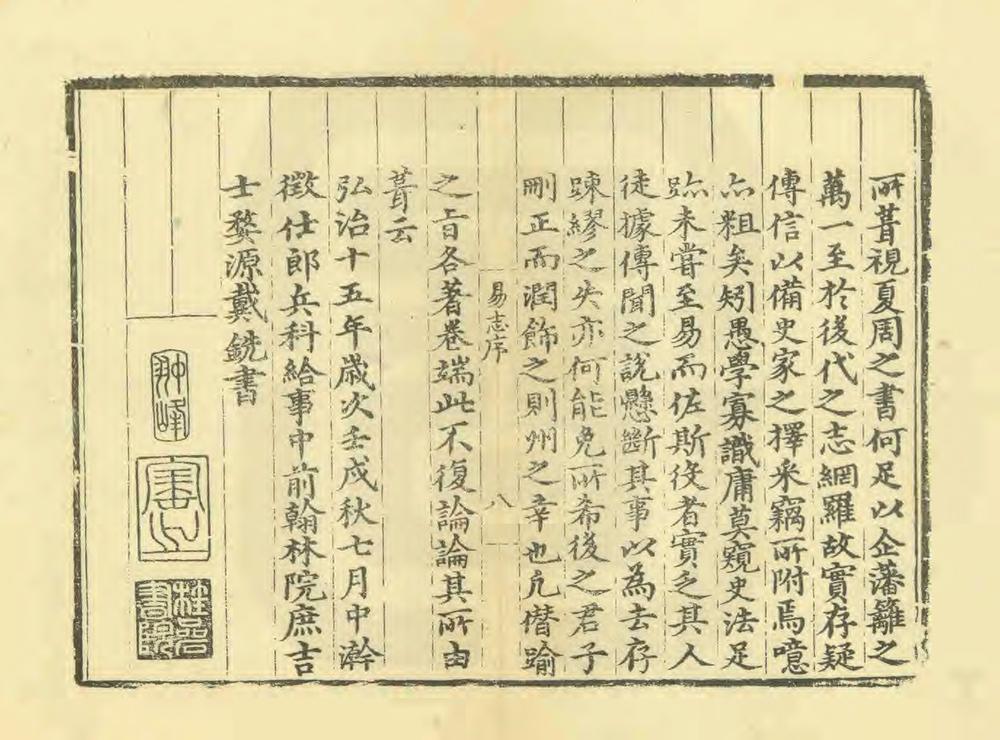 所葺視夏周之書何足以企藩籬之
萬一至於後代之志網羅故實存疑
傳信以備史家之擇采竊所附焉噫
亦粗矣矧愚學寡識庸莫窺史法足
跡未嘗至易而佐斯役者實乏其人
徒據傳聞之說懸斷其事以為去存
踈繆之失亦何能免所希後之君子
刪正而潤飾之則州之幸也凡僭踰
易志序
八
之旨各著卷端此不復論論其所由
葺云
弘治十五年歲次壬戌秋七月中澣
徵仕郎兵科給事中前翰林院庶吉
士婺源戴銑書
翀峰
桂巖書院